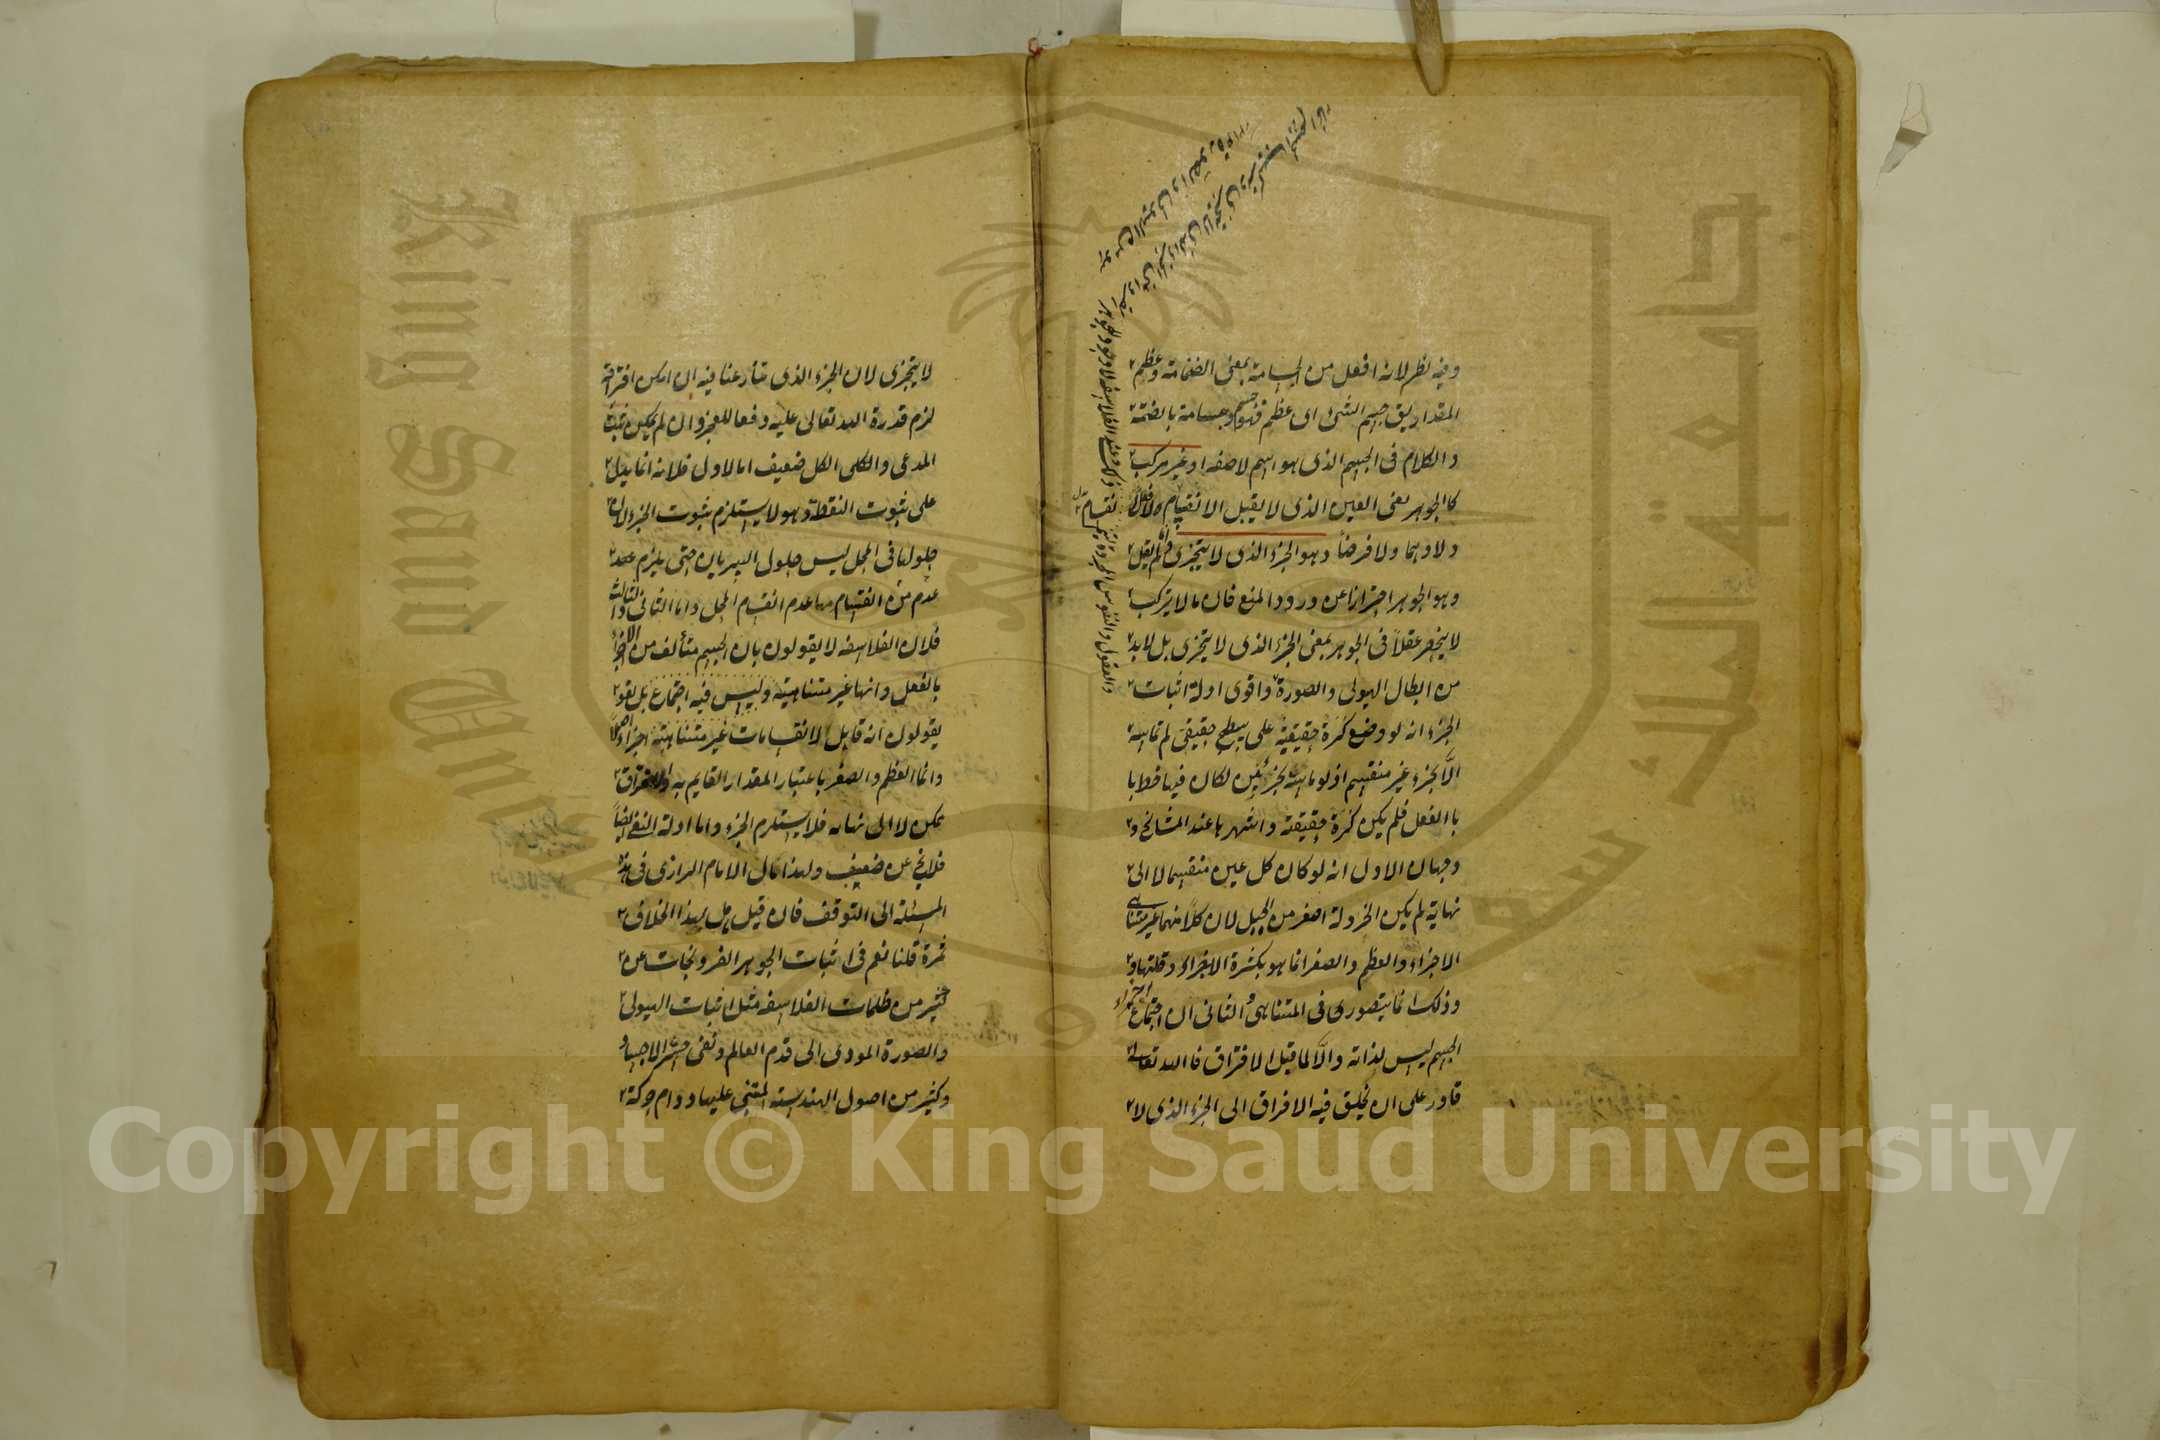 وفيه نظر لانه افعل من الجسامة بمعنى الضخامة وعظم
المقدار يق جسم الشئ اى عظم فهو جسيم وجسامة بالضمة
والكلام فى الجسم الذى هو اسم لا صفه او غير مركب
كالجوهر يعنى العين الذى لا يقبل الانقسام لا فعلا
ولا وهما ولا فرضاً وهو الجزء الذى لا يتجزى ولم يقل
وهو الجوهر احترازا عن ورود المنع فان ما لا يتركب
لا ينحصر عقلاً فى الجوهر بمعنى الجزء الذى لا يتجزى بل لا بد
من ابطال الهيولى والصورة واقوى ادلة اثبات
الجزء انه لو وضع كرة حقيقية على سطح حقيقى لم تماسه
الّا بجزء غير منقسم اذ لو ماسته بجزئين لكان فيها خط با
با الفعل فلم يكن كرة حقيقته واشهرها عند المشائخ و
وجهان الاول انه لو كان كل عين منقسما لا الى
نهاية لم يكن الخردلة اصغر من الجبل لان كلاً منهما غير متناهى
الاجزاء والعظم والصغر انما هو بكثرة الاجزاء وقلتها و
وذلك انما يتصور فى المتناهى والثانى ان اجتماع اجزاء
الجسم ليس لذاته والّا لما قبل الافتراق فالله تعالى
قادر على ان يخلق فيه الافراق الى الجزء الذى لا
لا يتجزى لان الجزء الذى تنازعنا فيه ان امكن افتراقه
لزم قدرة الله تعالى عليه دفعا للعجز وان لم يمكن ثبت
المدعى والكلى الكل ضعيف اما الاول فلانه انما يدل
على ثبوت النقطة وهو لا يستلزم ثبوت الجزء لان
حلولها فى المحل ليس حلول السريان حتى يلزم عد
عدم من انقسامها عدم انقسام المحل واما الثانى والثالث
فلان الفلاسفه لا يقولون بان الجسم متألف من الاجزاء
بالفعل وانها غير متناهية وليس فيه اجتماع بل يقو
يقولون انه قابل لانقسامات غير متناهية اجزاء اصلاً
وانما العظم والصغر باعتبار المقدار القايم به والافتراق
ممكن لا الى نهايه فلا يستلزم الجزء واما ادلة النفى ايضاً
فلا يخ عن ضعيف ولهذا مال الامام الرازى فى هذه
المسئلة الى التوقف فان قيل هل لهذا الخلاف
ثمرة قلنا نعم فى اثبات الجوهر الفرد نجات عن
كثير من ظلمات الفلاسفه مثل اثبات الهيولى
والصورة المودى الى قدم العالم ونفى حشر الاجساد
وكثير من اصول الهندسية المبتنى عليها دوام حركة
Copyright © King Saud University
King Saud University
جامعة الملك سعود